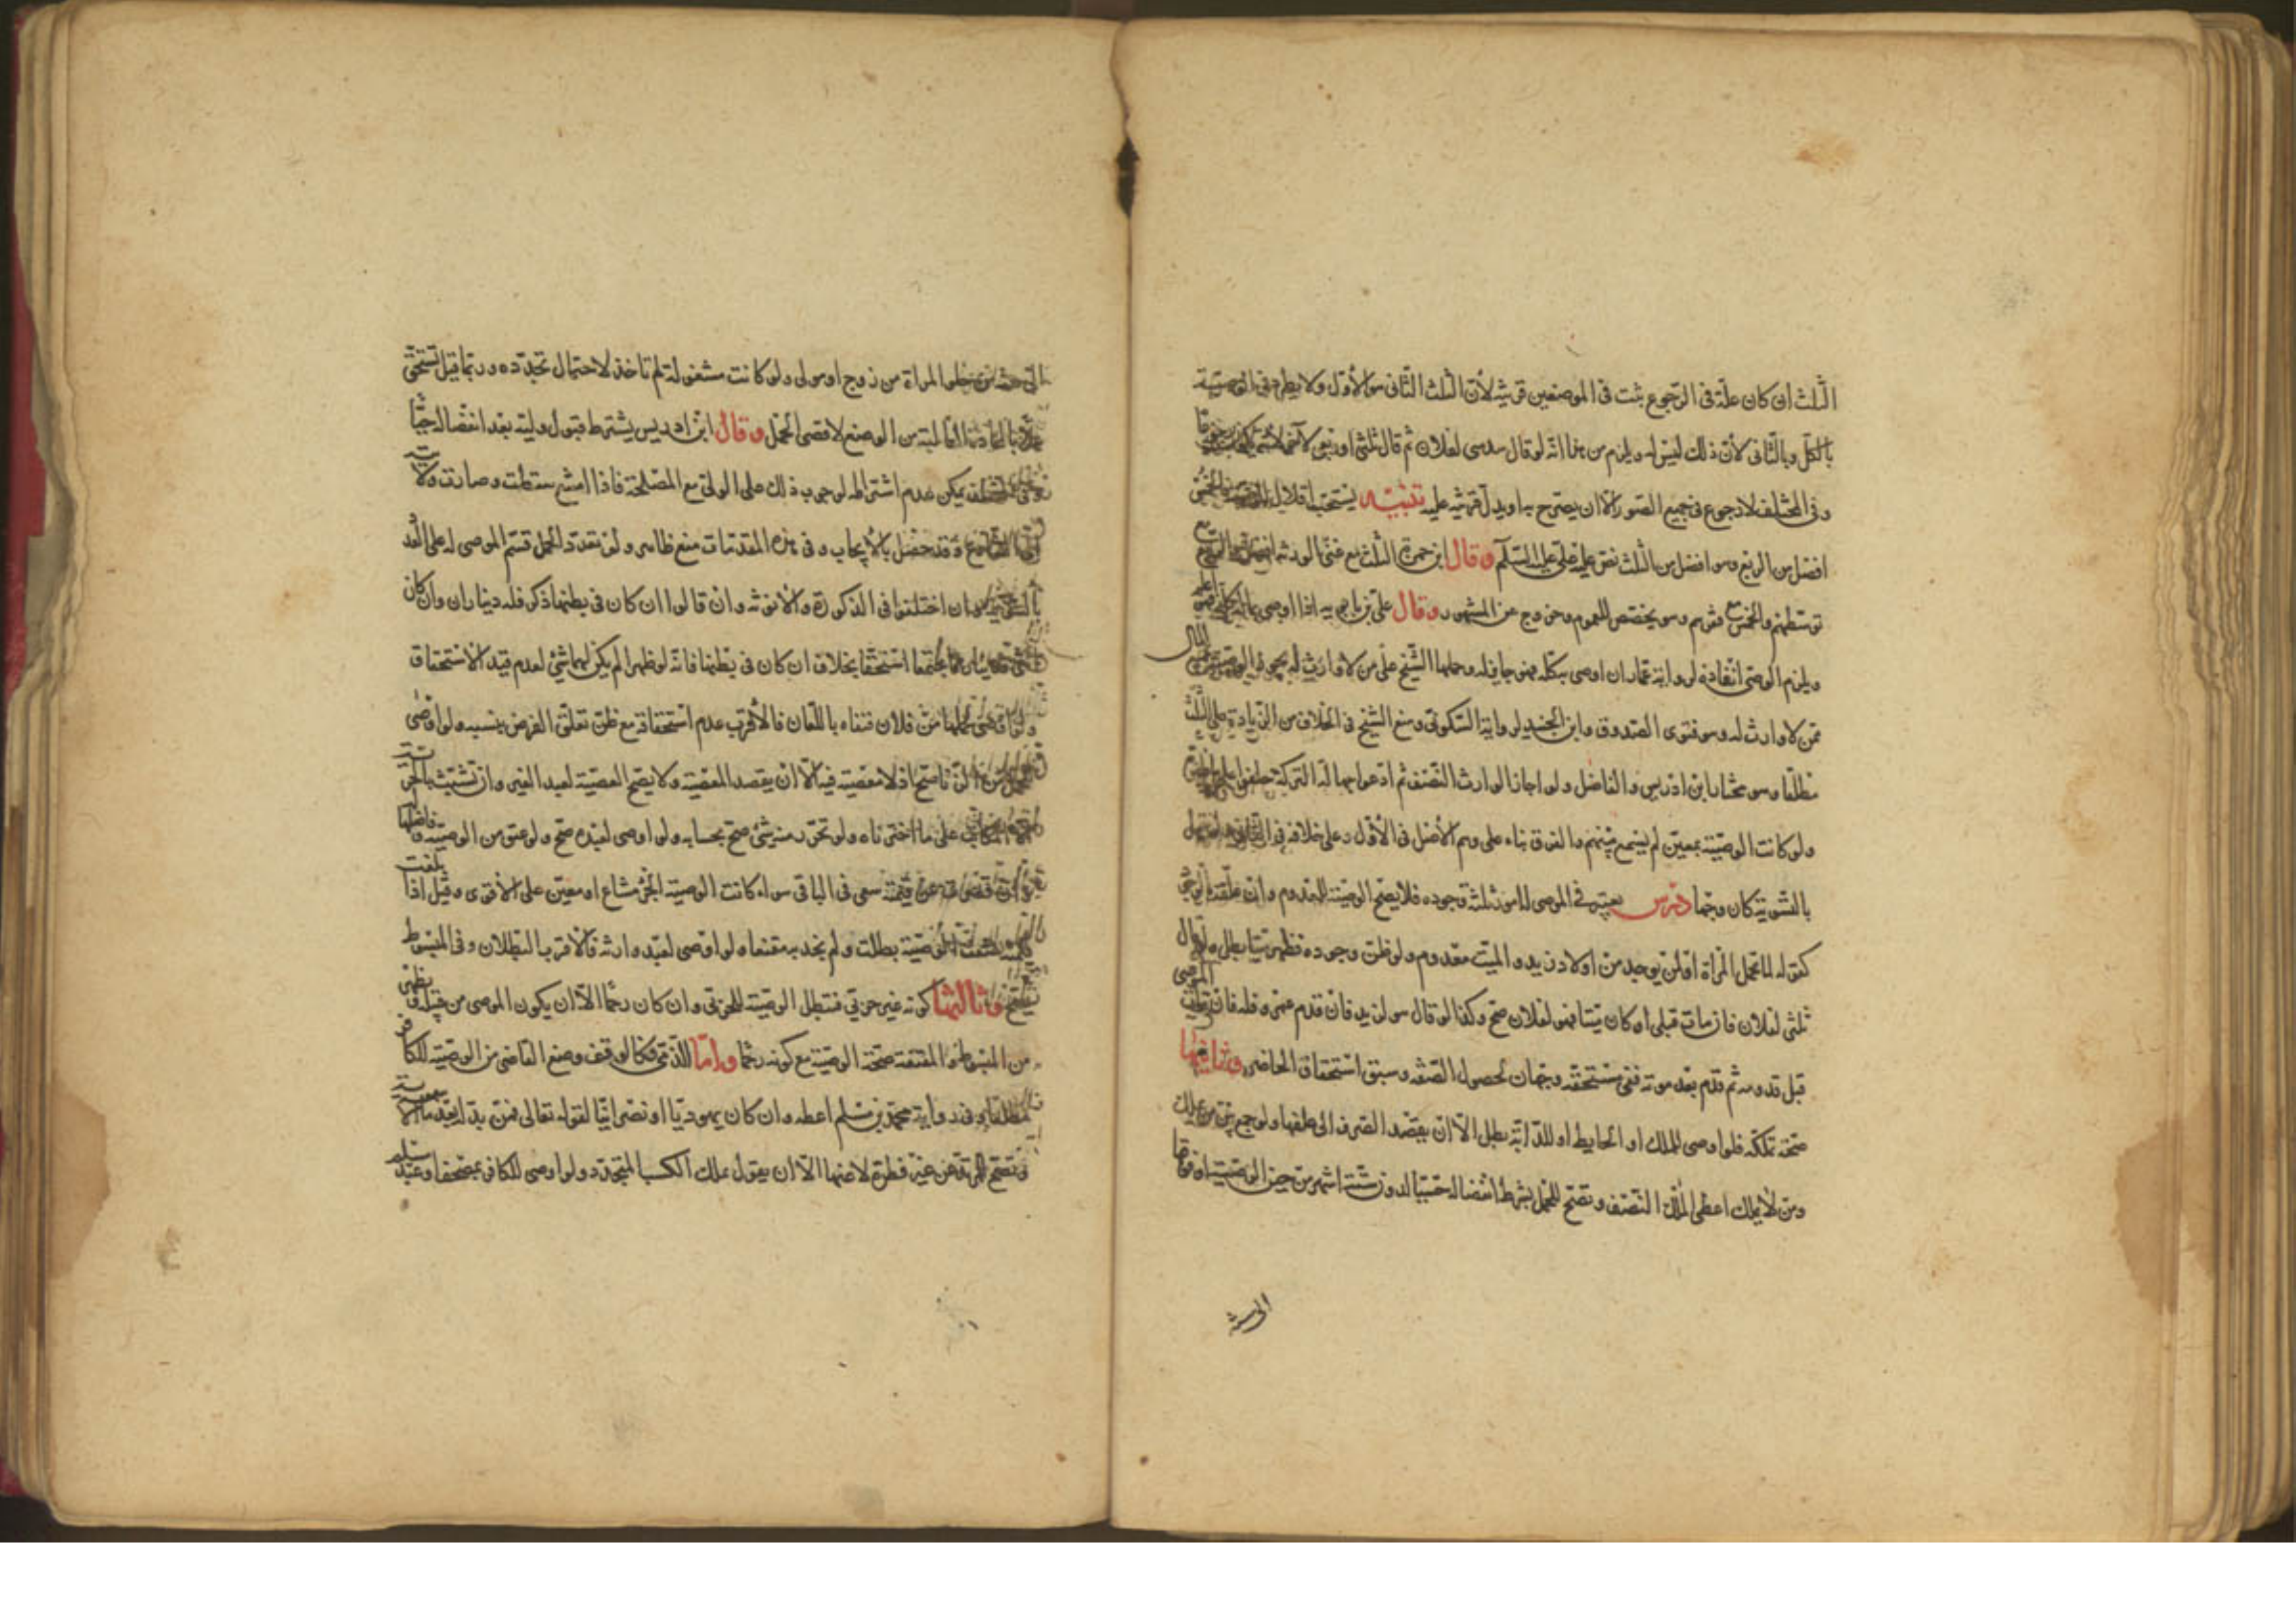 الثلث ان كان علة فى الرجوع ثبت فى الموضعين قرينة لأن الثلث الثانى هو الأول ولا
بالكل وبالثانى لأن ذلك ليس له ويلزم من هذا انه لو قال سدسى لفلان ثم قال ثلثى اوربعى لآخر
وفى المختلف لا رجوع فى جميع الصور الا ان يصرح به او يدل قرينة عليه تنبيه يستحب اقلال
افضل من الربع وهو افضل من الثلث نص عليه على عليه السلام وقال ابن حمزة الثلث مع غنى الورثة افضل
توسطهم والخمس مع فقرهم وهو تخصيص للعموم وخروج عن المشهور وقال على بن بابويه اذا اوصى بماله كله
ويلزم الوصى انفاذه لرواية عمار ان اوصى بكله فهو جايز له وحملها الشيخ على من لا وارث له
ممن لا وارث له وهو فتوى الصدوق وابن الجنيد لرواية السكونى ومنع الشيخ فى الخلاف من الزيادة على الثلث
مطلقا وهو مختار ابن ادريس والفاضل ولو اجاز الوارث النصف ثم ادعوا جهالة التركة حلفوا
ولو كانت الوصية بمعين لم يسمع منهم والفرق بناء على وهم الأصل فى الأول وعلى خلافه فى الثانى
بالتسوية كان وجها درس يعتبر فى الموصى له امور ثلثة وجوده فلا يصح الوصية للمعدوم وان علقه
كقوله لما تحمل المرأة او لمن يوجد من اولاد زيد والميت معدوم ولو ظن وجوده فظهر ميتا بطل ولو قال
ثلثى لفلان فان مات قبلى او كان ميتا فهو لفلان صح وكذا لو قال هو لزيد فان قدم عمرو فله فان مات الموصى
قبل قدومه ثم قدم بعد موته ففى مستحقه وجهان لحصول الصفة وسبق استحقاق الحاضر وثانيها
صحة تملكه فلو اوصى للملك او الحايط او للدابة بطل الا ان يقصد الصرف الى علفها ولو جمع بين من يملك
ومن لا يملك اعطى المالك النصف وتصح للحمل بشرط انفصاله حيا لدون ستة اشهر من حين الوصية او فوقها
الى عشرة
الى عشرة من خلو المراة من زوج او مولى ولو كانت مشغولة لم تاخذ لاحتمال تجدده وربما قيل تستحق
من الوضع لاقصى الحمل وقال ابن ادريس يشترط قبول وليه بعد انفصاله حيا
وفى المختلف يمكن عدم اشتراطه لوجوب ذلك على الولى مع المصلحة فاذا امتنع سقطت وصارت
وقد حصل بالأيجاب وفى هذه المقدمات منع ظاهر ولو تعدد الحمل قسم الموصى له على العدد
بالسوية وان اختلفوا فى الذكورة والانوثة وان قالوا ان كان فى بطنها ذكر فله ديناران وان كان
اجتمعا استحقا بخلاف ان كان فى بطنها فانه لو ظهرا لم يكن لهما شئ لعدم قيد الاستحقاق
من فلان فنفاه باللعان فالأقرب عدم استحقاقه مع ظن تعلق الغرض بنسبه ولو اوصى
لحمل من الزنا صح اذ لا معصية فيه الا ان يقصد المعصية ولا يصح الوصية لعبد الغير وان تشبث بالحرية
على ما اخترناه ولو تحرر منه شئ صح بحسابه ولو اوصى لعبده صح ولو عتق من الوصية وفاضلها
له وان قصرت عن قيمته سعى فى الباقى سواء كانت الوصية بجزء مشاع او معين على الأقوى وقيل اذا بلغت
قيمته ضعف الوصية بطلت ولم نجد به مقنعا ولو اوصى لعبد وارثه فالاقرب البطلان وفى المبسوط
يصح وثالثها كونه غير حربى فتبطل الوصية للحربى وان كان رحما الا ان يكون الموصى من قبله
من المبسوط والمقنعة صحة الوصية مع كونه رحما واما للذمى فكالوقف ومنع القاضى من الوصية للكافر
مطلقا وفى رواية محمد بن مسلم اعطه وان كان يهوديا او نصرانيا لقوله تعالى فمن بدله بعد ما سمعه
وتصح للمرتد عن غير فطرة لا عنها الا ان يقول بملك الكسب المتجدد ولو اوصى للكافر بمصحف او عبد مسلم